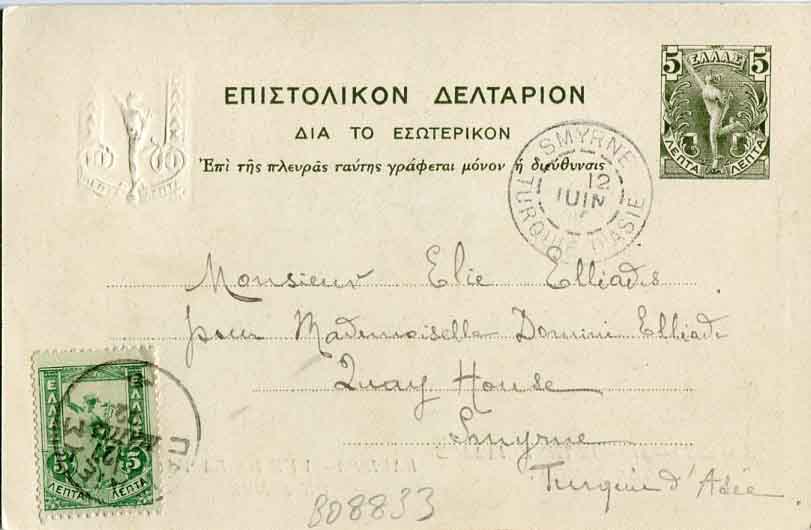 5 ΕΛΛΑΣ 5
ΛΕΠΤΑ ΛΕΠΤΑ
ΕΠΙΣΤΟΛΙΚΟΝ ΔΕΛΤΑΡΙΟΝ
ΔΙΑ ΤΟ ΕΣΩΤΕΡΙΚΟΝ
Ἐπὶ τῆς πλευρᾶς ταύτης γράφεται μόνον ἡ διεύθυνσις
SMYRNE
12
JUIN
TURQUIE D'ASIE
Monsieur Elie Elliadis
pour Mademoiselle Domini Elliadi
Quay House
Smyrne
Turquie d'Asie
ΕΛΛΑΣ
5 5
ΛΕΠΤΑ ΛΕΠΤΑ
808833